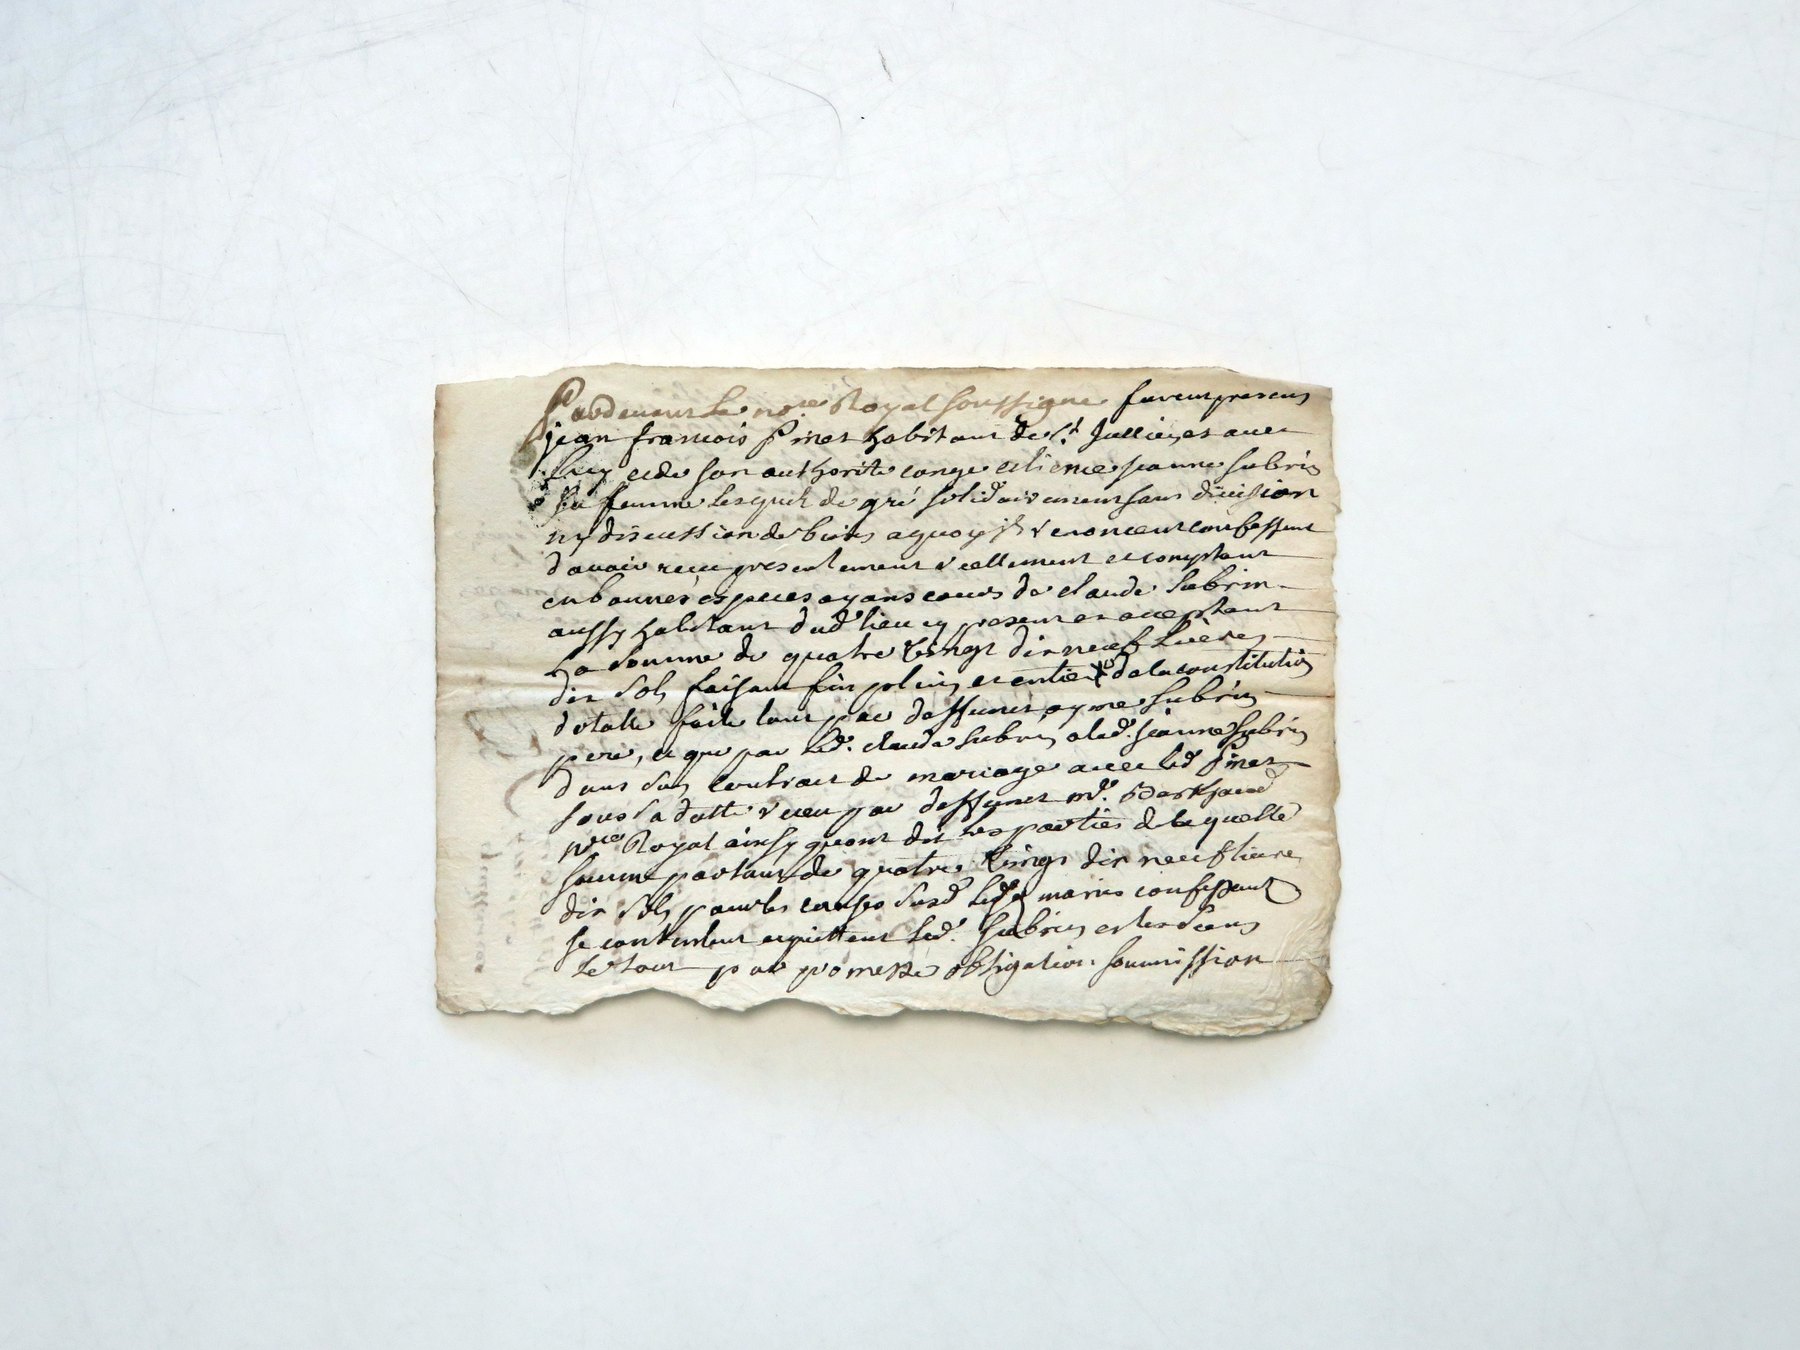 Pardevant le no.re Royal soussigne furent presens
jean francois Pinet habitant de s.t Jullien, et avec
luy et de son authorite conge et licence jeanne subrin
sa femme lesquels de gré solidairement sans division
ny discussion de biens a quoy ils renoncent confessent
d'avoir receu presentement reellement et comptant
en bonnes especes ayans cours de claude Subrin
aussy habitant dud. lieu cy present et acceptant
La somme de quatre vingt dix neuf livres
dix sols faisant fin plein, et entier de la constitution
dotalle faite tant par deffunct ayme Subrin
pere, et que par led. claude subrin, a lad. jeanne Subrin
dans son contract de mariage avec led. Pinet
sous sa datte receu par deffunct m.e
n.re Royal ainsy quont dit les parties de laquelle
somme partant de quatre vingt dix neuf livres
dix sols pour les causes susd. led. maries confessent
se contentent et quittent led. Subrin, et les siens
le tout par promesse obligation soumission